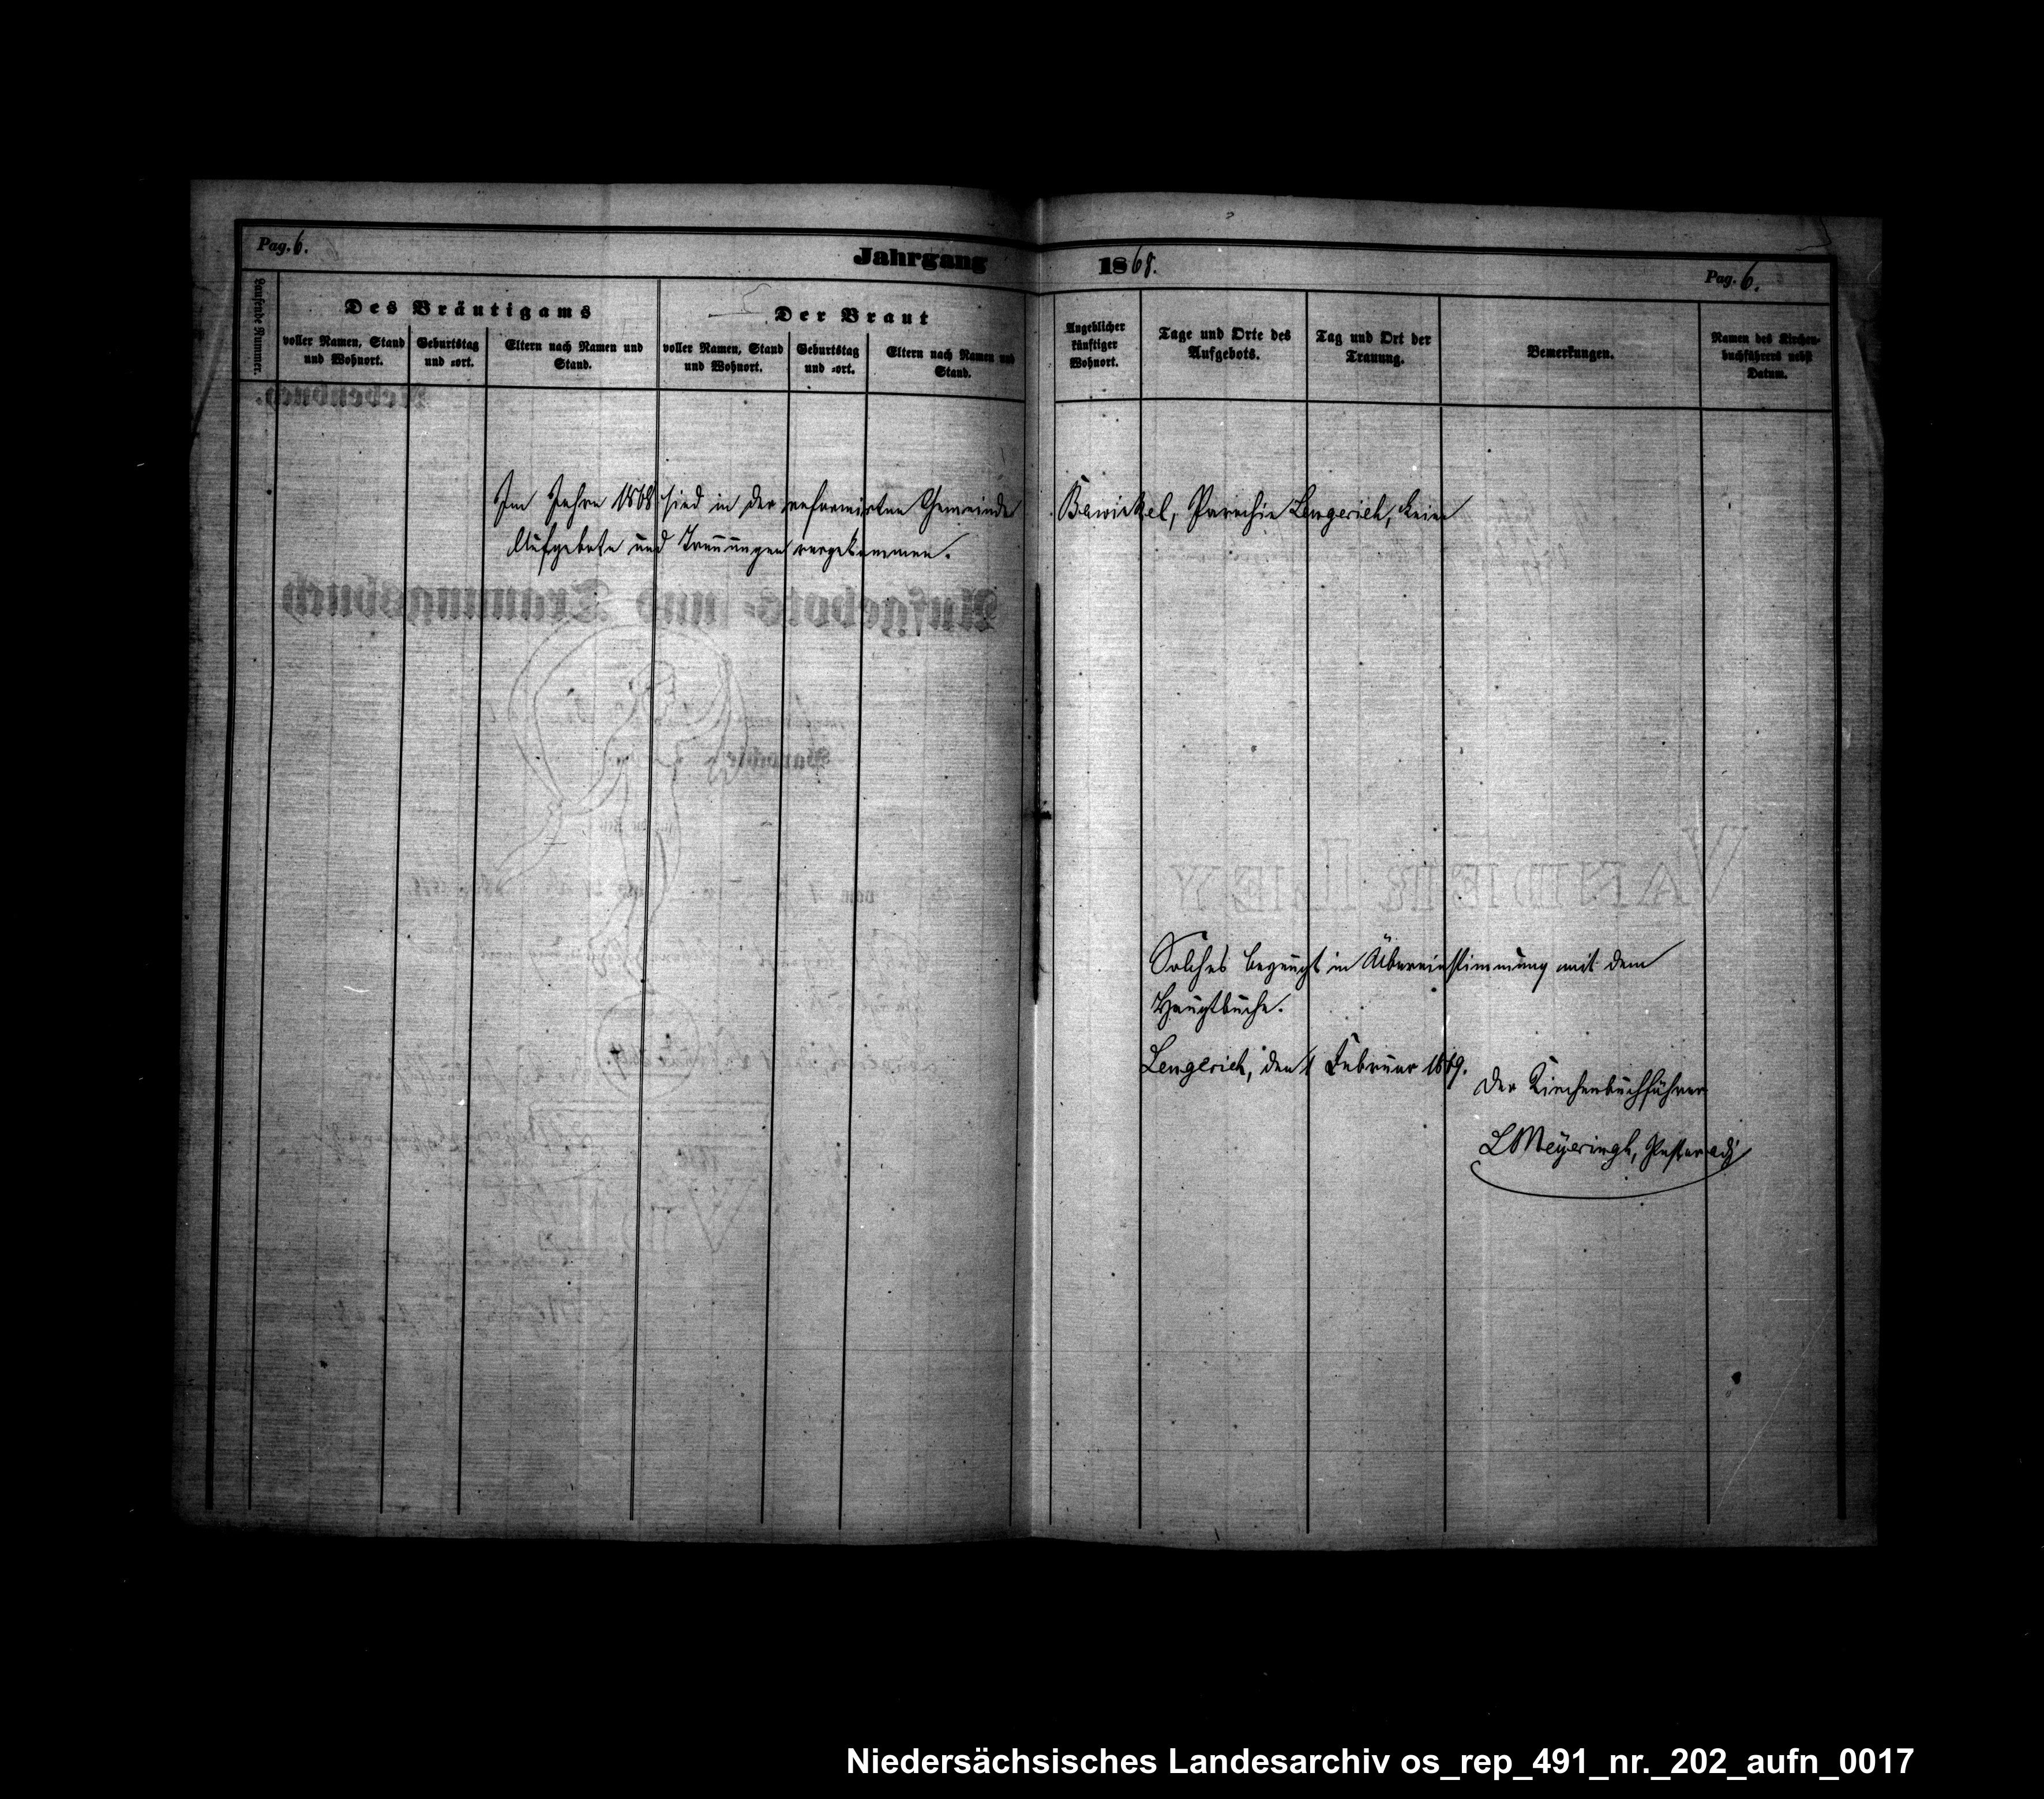 Pag. 6.
Jahrgang 1868.
Pag. 6.
Laufende Nummer.
Des Bräutigams
Der Braut
voller Namen, Stand
und Wohnort.
Geburtstag
und -ort.
Eltern nach Namen und
Stand.
voller Namen, Stand
und Wohnort.
Geburtstag
und -ort.
Eltern nach Namen und
Stand.
Angeblicher
künftiger
Wohnort.
Tage und Orte des
Aufgebots.
Tag und Ort der
Trauung.
Bemerkungen.
Namen des Kirchen-
buchführers nebst
Datum.
Im Jahre 1868 sind in der reformirten Gemeinde Bawinkel, Parochie Lengerich, keine
Aufgebote und Trauungen vorgekommen.
Solches bezeugt in Übereinstimmung mit dem
Hauptbuche.
Lengerich, den 1 Februar 1869.
Der Kirchenbuchführer
L Meyeringh, Pastor adj
Nebenbuch.
Aufgebots- und Trauungsbuch
Parochie
vom
Niedersächsisches Landesarchiv os_rep_491_nr._202_aufn_0017